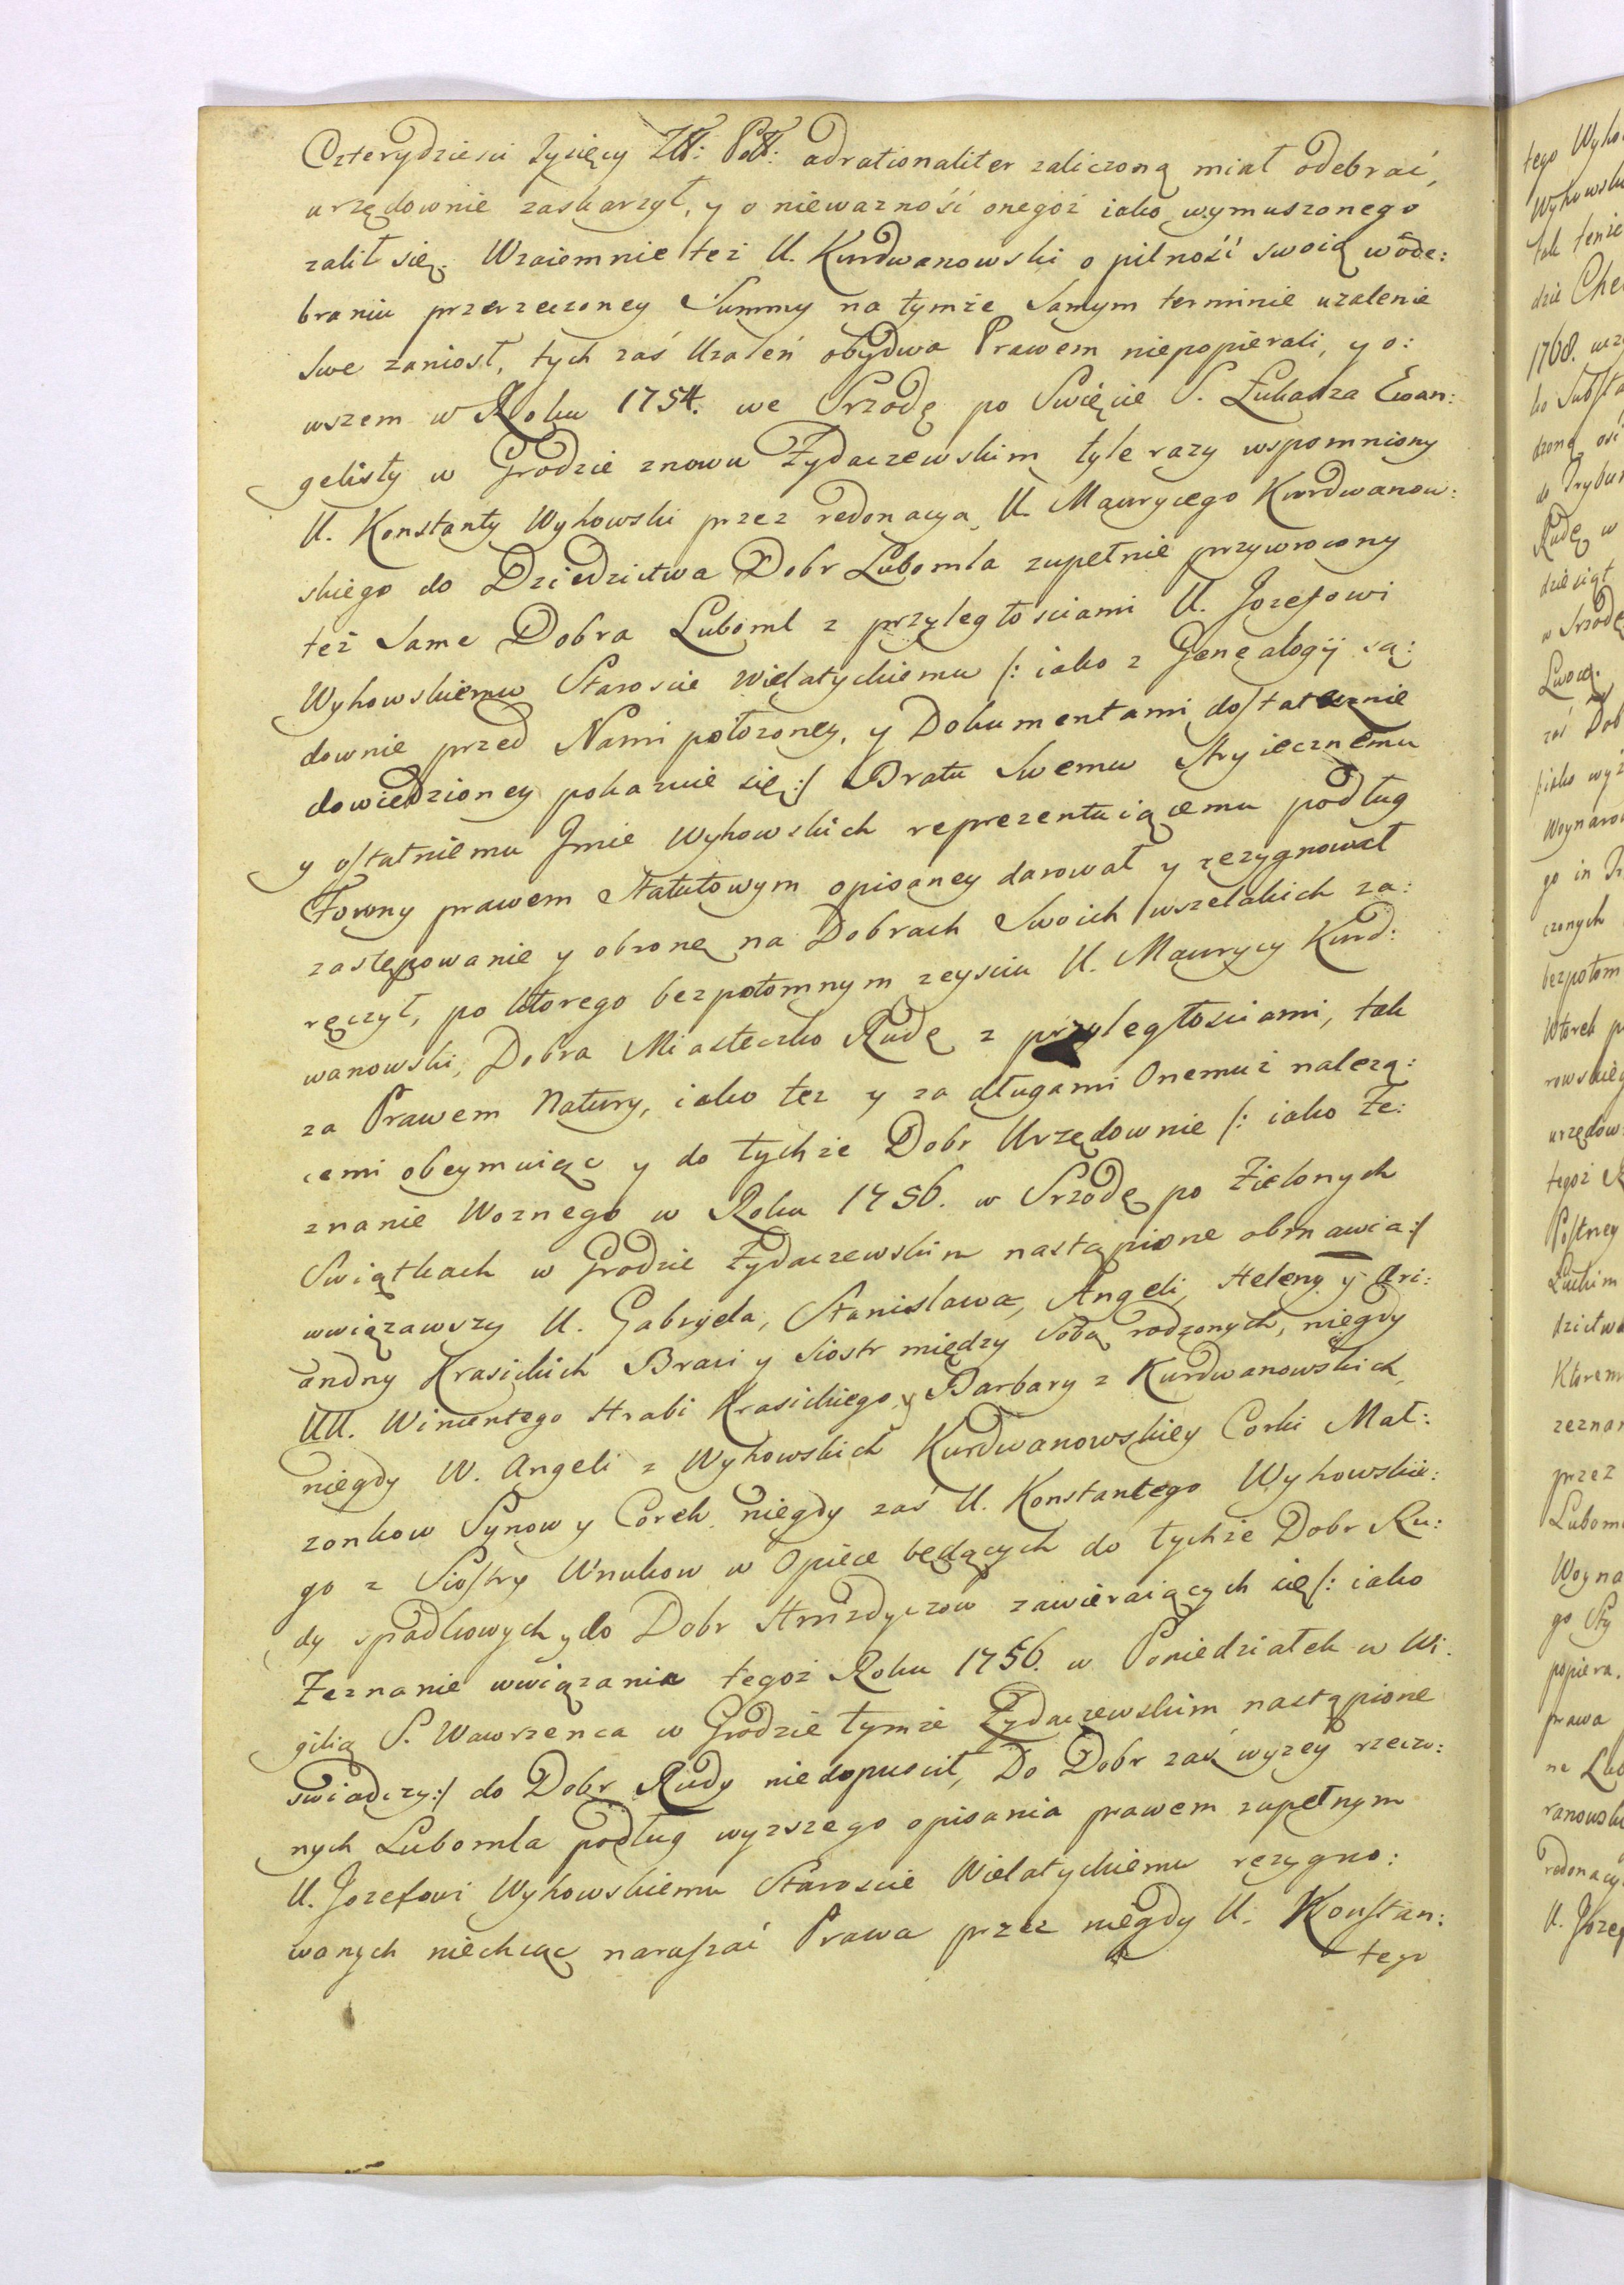 Czterydziesci Tysięcy Złł: Poll: adrationaliter zaliczoną miał odebrać,
urzędownie zaskarzył, y o niewazność onegoż iako wymuszonego
zalił się. Wzaiemnie też U. Kurdwanowski o pilność swoią wode:
braniu przerzeczoney Summy na tymże samym terminie uzalenie
swe zaniosł, tych zaś Uzaleń obydwa Prawem niepopierali, y o:
wszem w Roku 1754. we Srzodę po Swięcie S. Łukasza Ewan:
gelisty w Grodzie znowu Zydaczewskim tyle razy wspomniony
U. Konstanty Wyhowski przez redonacya U. Maurycego Kurdwanow:
skiego do Dziedzictwa Dobr Lubomla zupełnie przywrocony
też same Dobra Luboml z przyległościami U. Jozefowi
Wyhowskiemu Staroscie Wielatyckiemu /: iako z Genealogij są:
downie przed Nami położoney, y Dokumentami dostatecznie
dowiedzioney pokazuie się :/ Bratu Swemu Stryiecznemu
y ostatniemu Jmie Wyhowskich reprezentuiącemu podług
Formy prawem Statutowym opisaney darował y rezygnował
zastępowanie y obronę na Dobrach Swoich wszelakich za:
ręczył, po ktorego bezpotomnym zeysciu U. Maurycy Kurd:
wanowski, Dobra Miasteczko Rudę z przyległościami, tak
za Prawem Natury, iako tez y za długami Onemuż nalezą:
cemi obeymuiąc y do tychże Dobr Urzędownie /: iako Ze:
znanie Woznego w Roku 1756. w Srzodę po Zielonych
Swiątkach w Grodzie Zydaczewskim nastąpione obmawia :/
wwiązawszy U. Gabryela, Stanisława, Angeli, Heleny y Ari:
andny Krasickich Braci y Siostr między Sobą rodzonych, niegdy
UU. Wincentego Hrabi Krasickiego, y Barbary z Kurdwanowskich,
niegdy W. Angeli z Wyhowskich Kurdwanowskiey Corki Mał:
zonkow Synow y Corek, niegdy zaś U. Konstantego Wyhowskie:
go z Siostry Wnukow w Opiece będących do tychże Dobr Ru:
dy spadkowych, y do Dobr Hnizdyczow zawieraiących się /: iako
Zeznanie wwiązania tegoż Roku 1756. w Poniedziałek w Wi:
gilią S. Wawrzenca w Grodzie tymże Zydaczewskim nastąpione
swiadczy :/ do Dobr Rudy niedopuscił, Do Dobr zaś wyzey rzeczo:
nych Lubomla podług wyzszego opisania prawem zupełnym
U. Jozefowi Wyhowskiemu Staroscie Wielatyckiemu rezygno:
wanych niechcąc naruszać Prawa przez niegdy U. Konstan:
tego